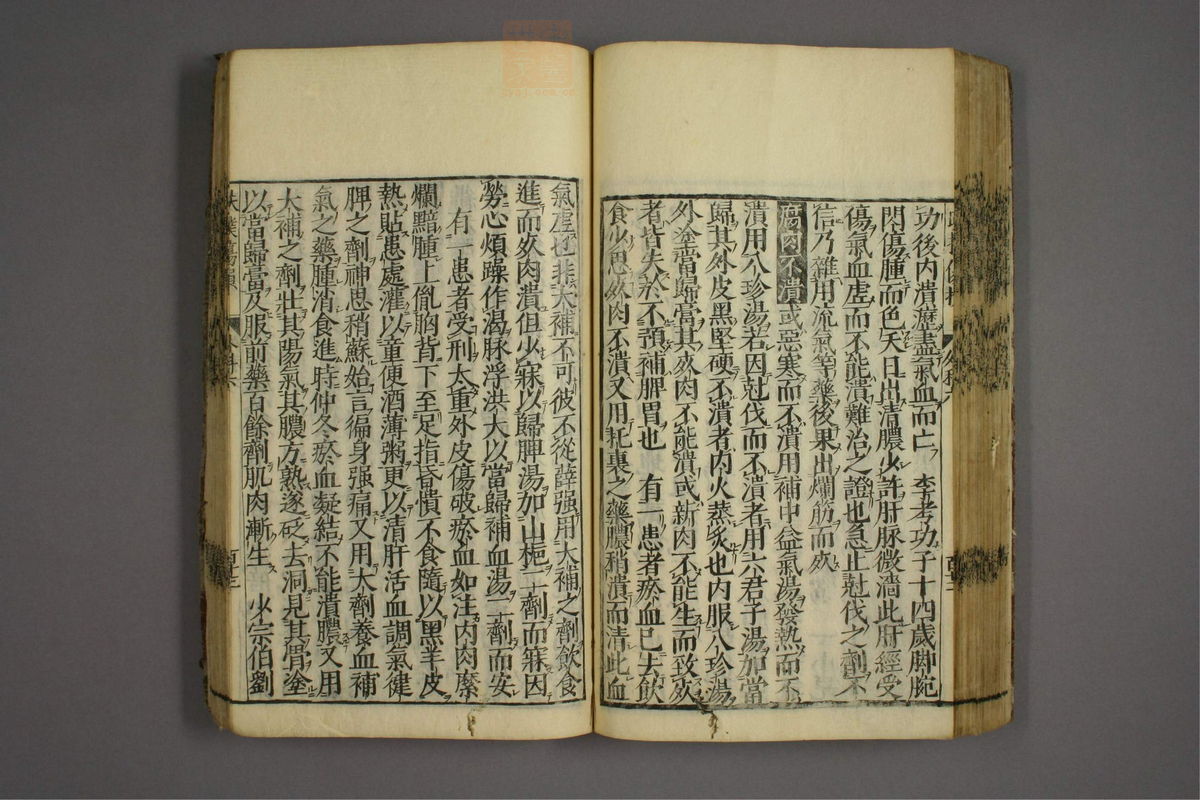 功後內潰瀝盡氣血而亡 李考功子十四歲脚腕
閃傷腫而色夭日出清膿少許肝脉微濇此肝經受
傷氣血虛而不能潰難治之證也急止尅伐之劑不
信乃雜用流氣等藥後果出爛筋而死
腐肉不潰或惡寒而不潰用補中益氣湯發熱而不
潰用八珍湯若因尅伐而不潰者用六君子湯加當
歸其外皮黑堅硬不潰者內火蒸炙也內服八珍湯
外塗當歸膏其死肉不能潰或新肉不能生而致死
者皆失於不預補脾胃也 有一患者瘀血已去飲
食少思死肉不潰又用托裏之藥膿稍潰而清此血
氣虛也非大補不可彼不從薛强用大補之劑飲食
進而死肉潰但少寐以歸脾湯加山梔二劑而寐因
勞心煩躁作渴脉浮洪大以當歸補血湯二劑而安
有一患者受刑太重外皮傷破瘀血如注內肉糜
爛黯腫上胤胸背下至足指昏憒不食隨以黑羊皮
熱貼患處灌以童便酒薄粥更以清肝活血調氣健
脾之劑神思稍蘇始言徧身强痛又用大劑養血補
氣之藥腫消食進時仲冬瘀血凝結不能潰膿又用
大補之劑壯其陽氣其膿方熟遂砭去洞見其骨塗
以當歸膏及服前藥百餘劑肌肉漸生 少宗伯劉